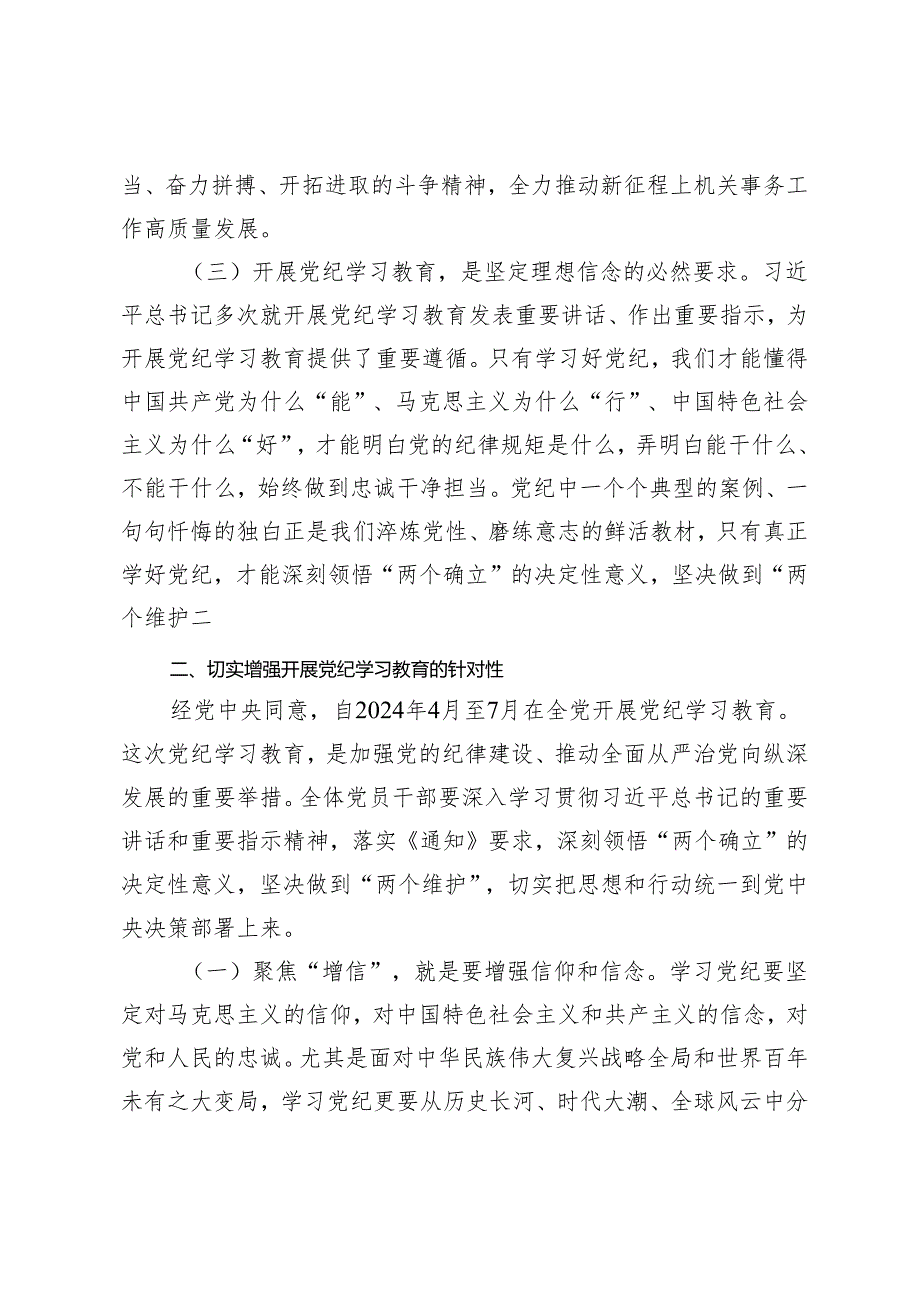 当、奋力拼搏、开拓进取的斗争精神，全力推动新征程上机关事务工
作高质量发展。
（三）开展党纪学习教育，是坚定理想信念的必然要求。习近
平总书记多次就开展党纪学习教育发表重要讲话、作出重要指示，为
开展党纪学习教育提供了重要遵循。只有学习好党纪，我们才能懂得
中国共产党为什么“能”、马克思主义为什么“行”、中国特色社会
主义为什么“好”，才能明白党的纪律规矩是什么，弄明白能干什么、
不能干什么，始终做到忠诚干净担当。党纪中一个个典型的案例、一
句句忏悔的独白正是我们淬炼党性、磨练意志的鲜活教材，只有真正
学好党纪，才能深刻领悟“两个确立”的决定性意义，坚决做到“两
个维护二
二、切实增强开展党纪学习教育的针对性
经党中央同意，自2024年4月至7月在全党开展党纪学习教育。
这次党纪学习教育，是加强党的纪律建设、推动全面从严治党向纵深
发展的重要举措。全体党员干部要深入学习贯彻习近平总书记的重要
讲话和重要指示精神，落实《通知》要求，深刻领悟“两个确立”的
决定性意义，坚决做到“两个维护”，切实把思想和行动统一到党中
央决策部署上来。
（一）聚焦“增信”，就是要增强信仰和信念。学习党纪要坚
定对马克思主义的信仰，对中国特色社会主义和共产主义的信念，对
党和人民的忠诚。尤其是面对中华民族伟大复兴战略全局和世界百年
未有之大变局，学习党纪更要从历史长河、时代大潮、全球风云中分